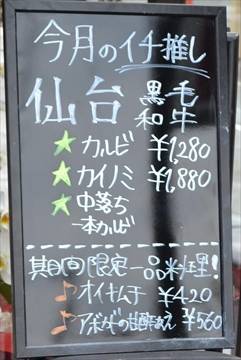 今月のイチ推し
仙台 黒毛和牛
★カルビ ¥1,280
★カイノミ ¥1,880
★中落ち
一本カルビ
期間限定一品料理!
♪オイキムチ ¥420
♪アボガドの甘酢あえ ¥560